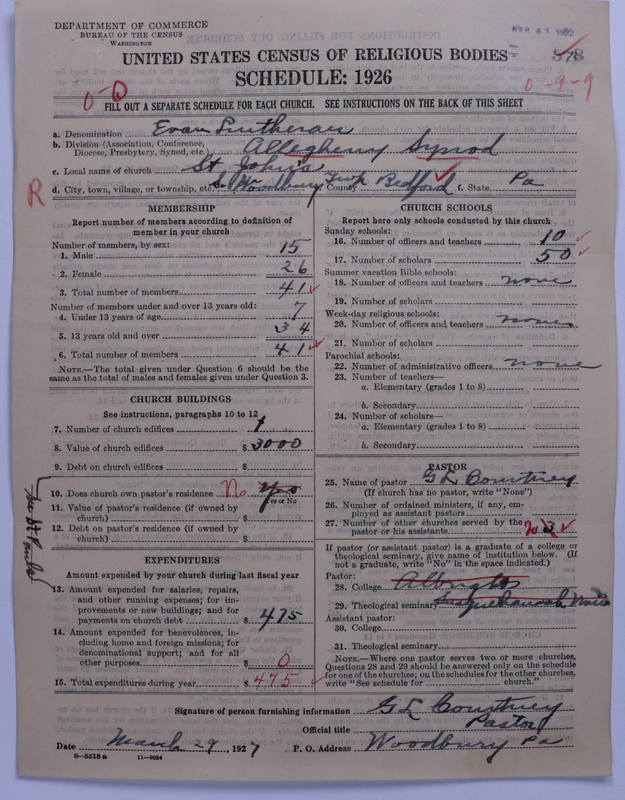 DEPARTMENT OF COMMERCE
BUREAU OF THE CENSUS
WASHINGTON
UNITED STATES CENSUS OF RELIGIOUS BODIES
SCHEDULE: 1926
0-0
0-9-9
FILL OUT A SEPARATE SCHEDULE FOR EACH CHURCH. SEE INSTRUCTIONS ON THE BACK OF THIS SHEET
a. Denomination Evan Lutheran
b. Division (Association, Conference, Diocese, Presbytery, Synod, etc.) Allegheny Synod
c. Local name of church St John's
d. City, town, village, or township, etc. S. Woodbury Twp County Bedford f. State Pa
R
MEMBERSHIP
Report number of members according to definition of
member in your church
Number of members, by sex:
1. Male 15
2. Female 26
3. Total number of members 41
Number of members under and over 13 years old:
4. Under 13 years of age 7
5. 13 years old and over 34
6. Total number of members 41
NOTE.—The total given under Question 6 should be the
same as the total of males and females given under Question 3.
CHURCH BUILDINGS
See instructions, paragraphs 10 to 12
7. Number of church edifices 1
8. Value of church edifices $ 3000
9. Debt on church edifices $
10. Does church own pastor's residence No yes
Yes or No
11. Value of pastor's residence (if owned by
church) $
12. Debt on pastor's residence (if owned by
church) $
EXPENDITURES
Amount expended by your church during last fiscal year
13. Amount expended for salaries, repairs,
and other running expenses; for im-
provements or new buildings; and for
payments on church debt $ 475
14. Amount expended for benevolences, in-
cluding home and foreign missions; for
denominational support; and for all
other purposes $ 0
15. Total expenditures during year $ 475
CHURCH SCHOOLS
Report here only schools conducted by this church
Sunday schools:
16. Number of officers and teachers 10
17. Number of scholars 50
Summer vacation Bible schools:
18. Number of officers and teachers none
19. Number of scholars
Week-day religious schools:
20. Number of officers and teachers none
21. Number of scholars
Parochial schools:
22. Number of administrative officers none
23. Number of teachers—
a. Elementary (grades 1 to 8)
b. Secondary
24. Number of scholars—
a. Elementary (grades 1 to 8)
b. Secondary
PASTOR
25. Name of pastor G L Courtney
(If church has no pastor, write "None")
26. Number of ordained ministers, if any, em-
ployed as assistant pastors
27. Number of other churches served by the
pastor or his assistants 3
If pastor (or assistant pastor) is a graduate of a college or
theological seminary, give name of institution below. (If
not a graduate, write "No" in the space indicated.)
Pastor:
28. College Albright
29. Theological seminary Susquehannah
Assistant pastor:
30. College
31. Theological seminary
NOTE.—Where one pastor serves two or more churches,
Questions 28 and 29 should be answered only on the schedule
for one of the churches; on the schedules for the other churches,
write "See schedule for church."
Signature of person furnishing information G L Courtney
Official title Pastor
Date March 29, 1927 P. O. Address Woodbury Pa
8—5518a 11—9054